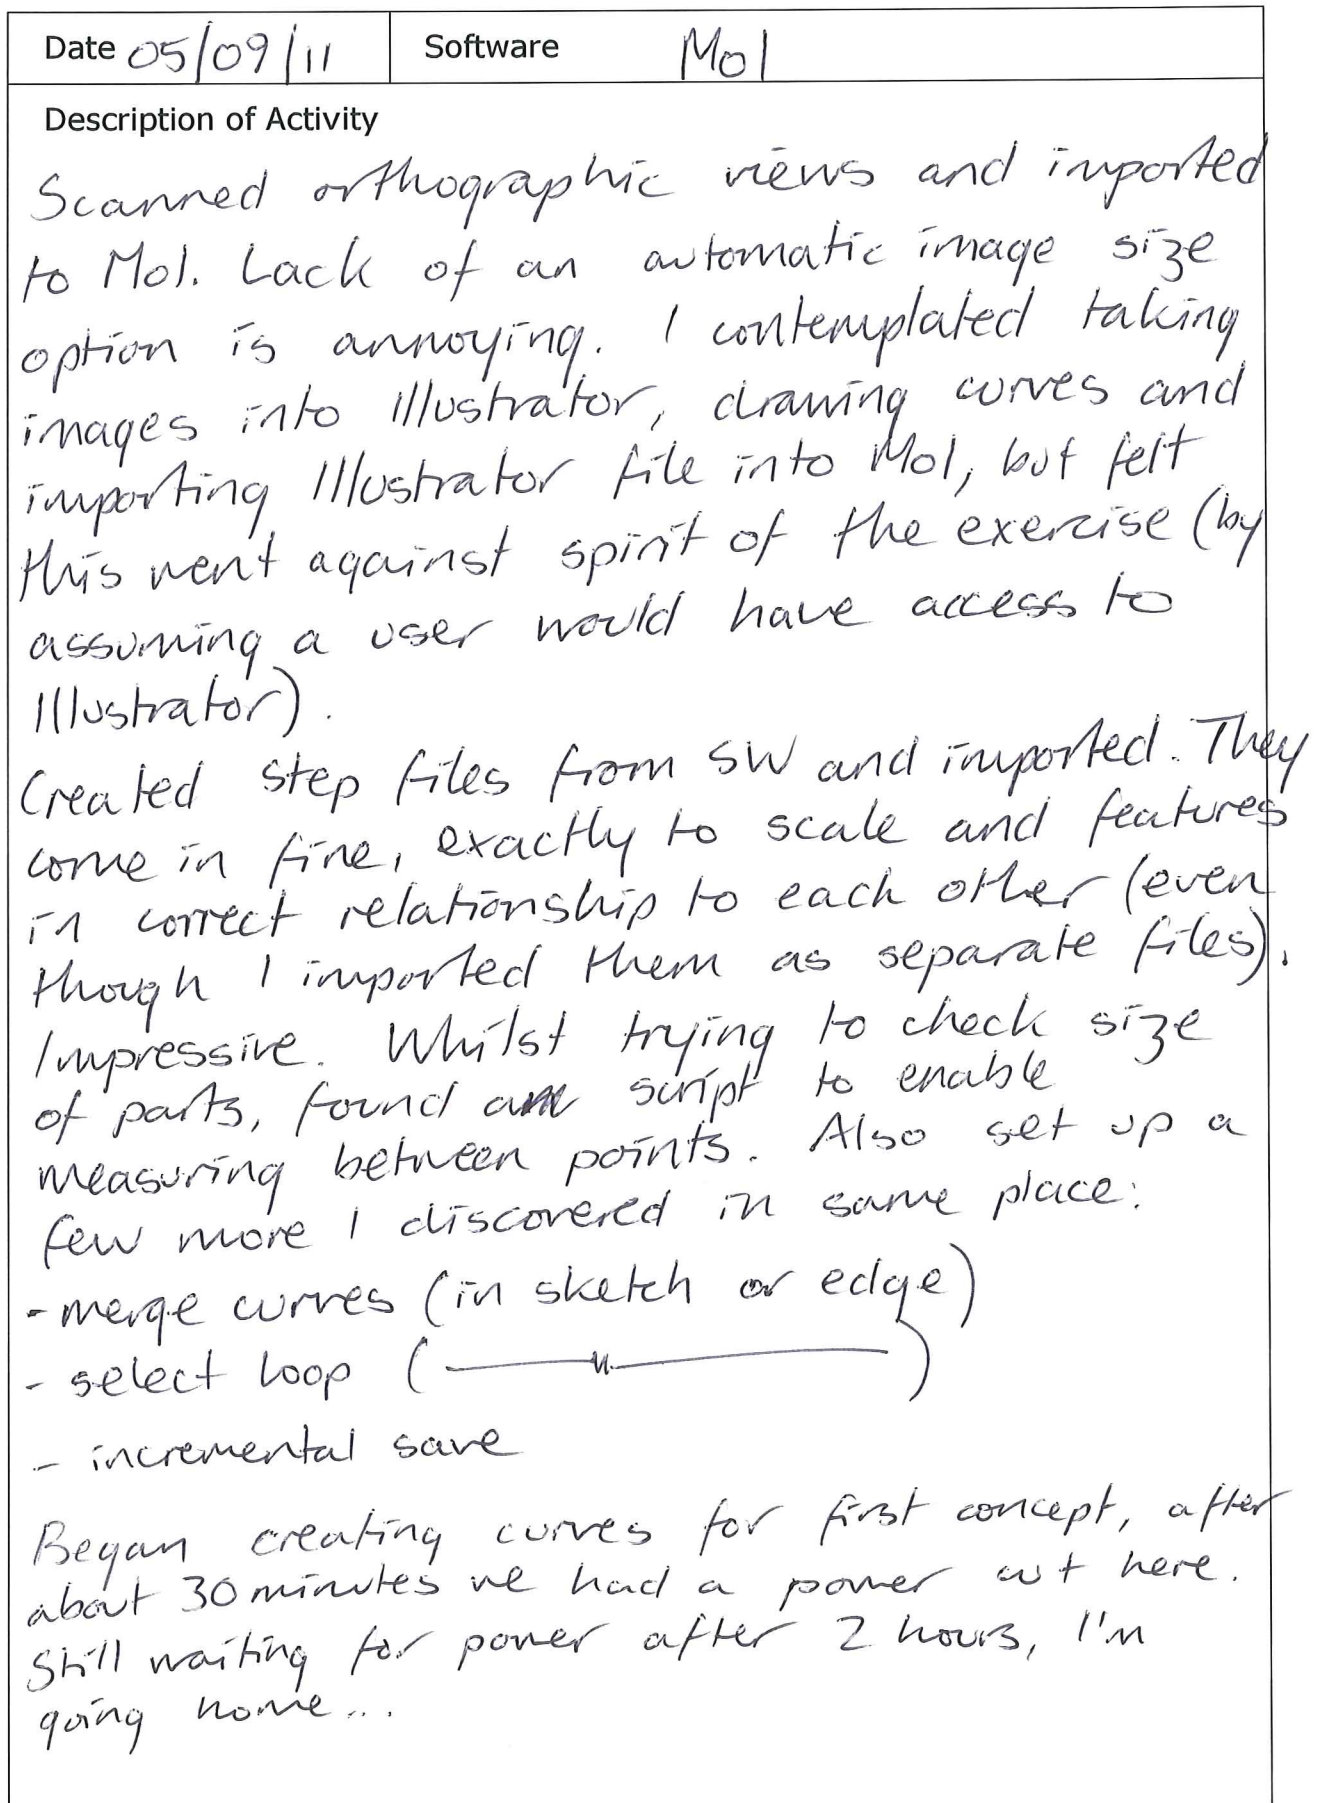 Date 05/09/11 Software MoI
Description of Activity
Scanned orthographic views and imported
to MoI. Lack of an automatic image size
option is annoying. I contemplated taking
images into Illustrator, drawing curves and
importing Illustrator file into MoI, but felt
this went against spirit of the exercise (by
assuming a user would have access to
Illustrator).
Created step files from SW and imported. They
come in fine, exactly to scale and features
in correct relationship to each other (even
though I imported them as separate files).
Impressive. Whilst trying to check size
of parts, found a script to enable
measuring between points. Also set up a
few more I discovered in same place:
- merge curves (in sketch or edge)
- select loop ( —— " —— )
- incremental save
Began creating curves for first concept, after
about 30 minutes we had a power cut here.
Still waiting for power after 2 hours, I'm
going home...